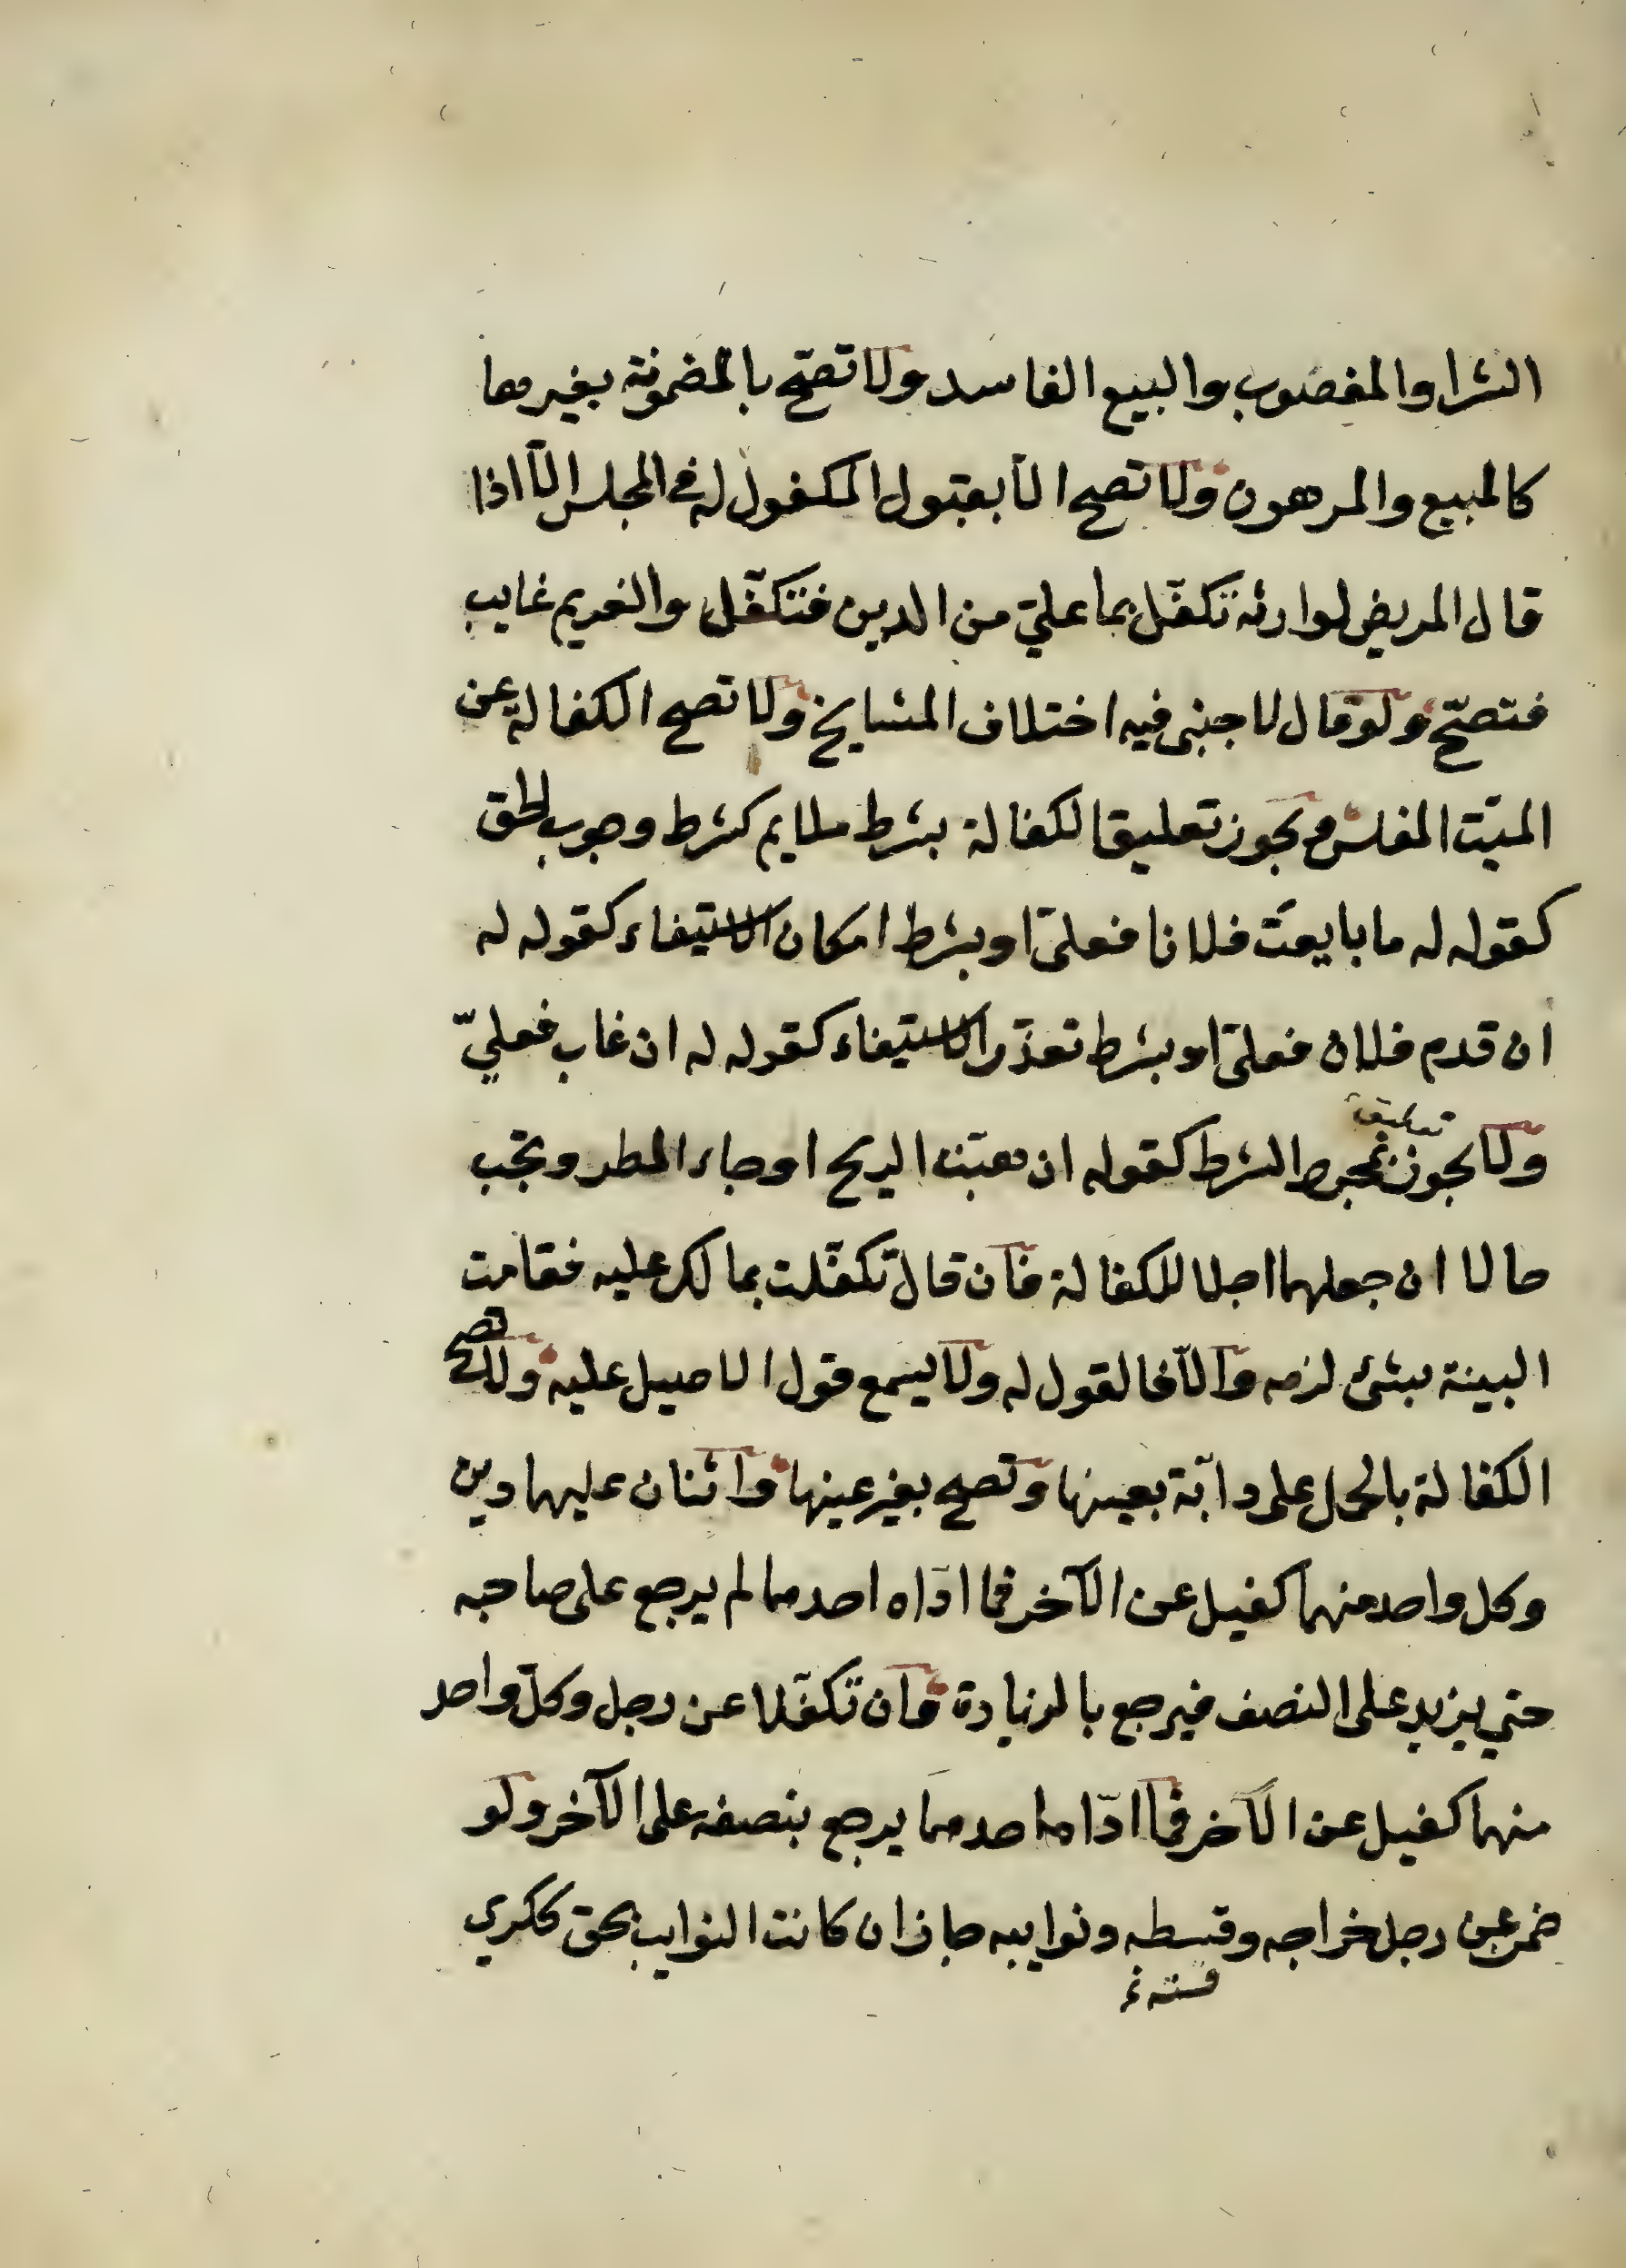 الشرا والمغصوب والبيع الفاسد ولا تصحّ بالمضمونة بغيرها
كالمبيع والمرهون ولا تصح الّا بقبول المكفول له في المجلس الّا اذا
قال المريض لوارثه تكفّل بما عليّ من الدين فتكفّل والغريم غايب
فتصحّ ولو قال لاجنبي فيه اختلاف المشايخ ولا تصح الكفالة عن
الميّت المفلس ويجوز تعليق الكفالة بشرط ملايم كشرط وجوب الحق
كقوله له ما بايعت فلانا فعليّ او بشرط امكان الاستيفاء كقوله له
ان قدم فلان فعليّ او بشرط تعذّر الاستيفاء كقوله له ان غاب فعليّ
تعليقها
ولا يجوز بمجرد الشرط كقوله ان هبّت الريح او جاء المطر وتجب
حالا ان جعلهما اجلا للكفالة فان قال تكفّلت بما لك عليه فقامت
البينة بشئ لزمه والّا فالقول له ولا يسمع قول الاصيل عليه ولا تصح
الكفالة بالحمل على دابّة بعينها وتصح بغير عينها واثنان عليهما دين
وكل واحد منهما كفيل عن الآخر فما ادّاه احدهما لم يرجع على صاحبه
حتي يزيد على النصف فيرجع بالزيادة فان تكفّلا عن رجل وكلّ واحد
منهما كفيل عن الآخر فما ادّاه احدهما يرجع بنصفه على الآخر ولو
ضمن عن رجل خراجه وقسطه ونوايبه جاز ان كانت النوايب بحق ككري